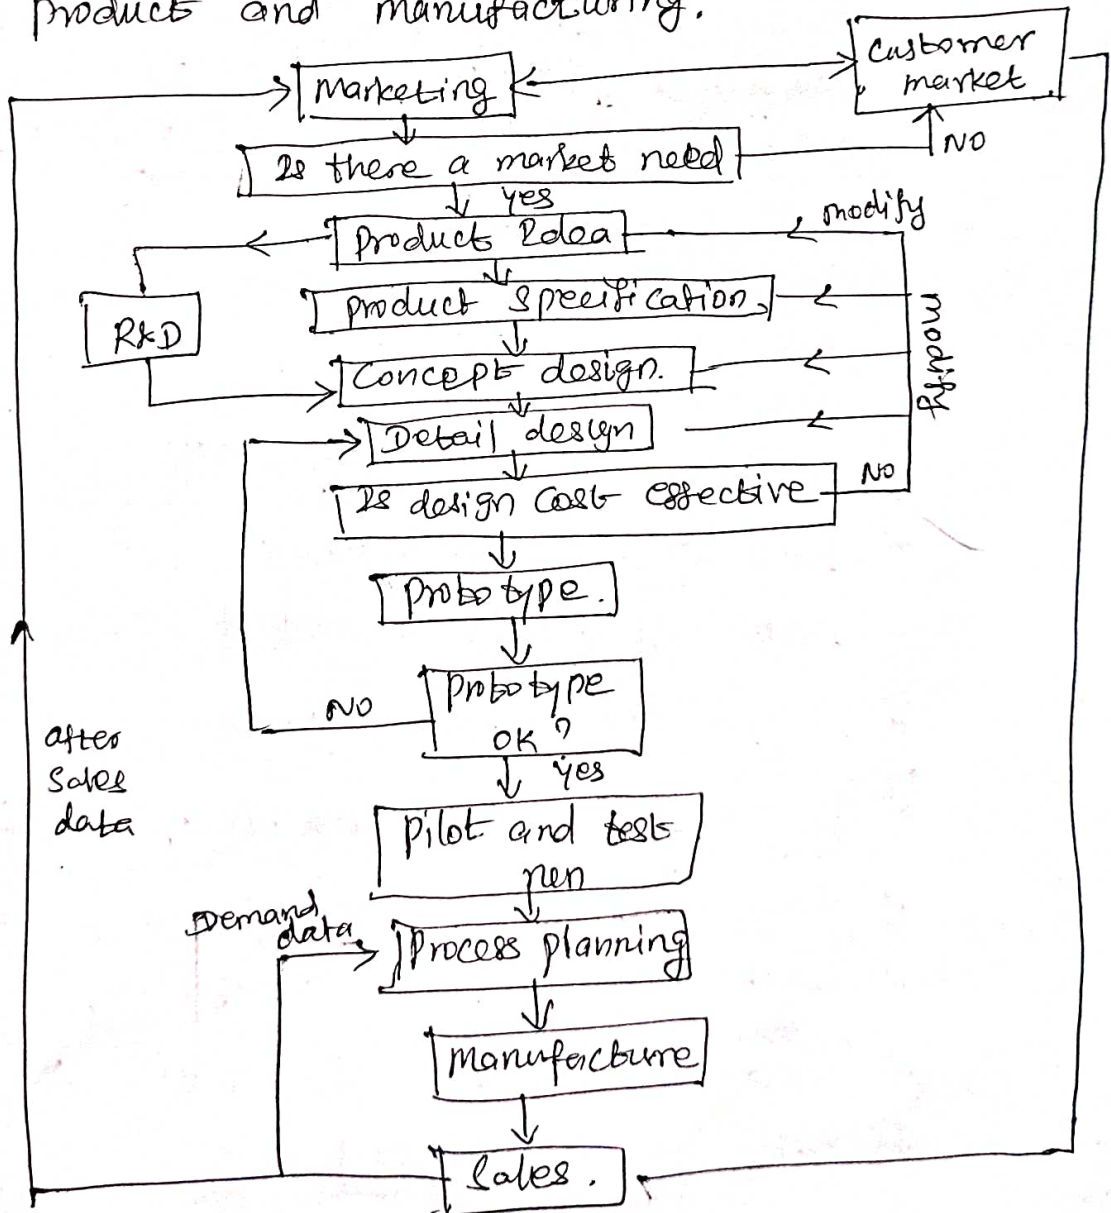 product and manufacturing.
Customer
market
Marketing
NO
Is there a market need
yes
modify
Product Idea
Product Specification
modify
R&D
Concept design.
Detail design
NO
Is design Cost effective
Prototype.
Prototype
OK ?
NO
yes
after
Sales
data
Pilot and test
run
Demand
data
Process planning
Manufacture
Sales.